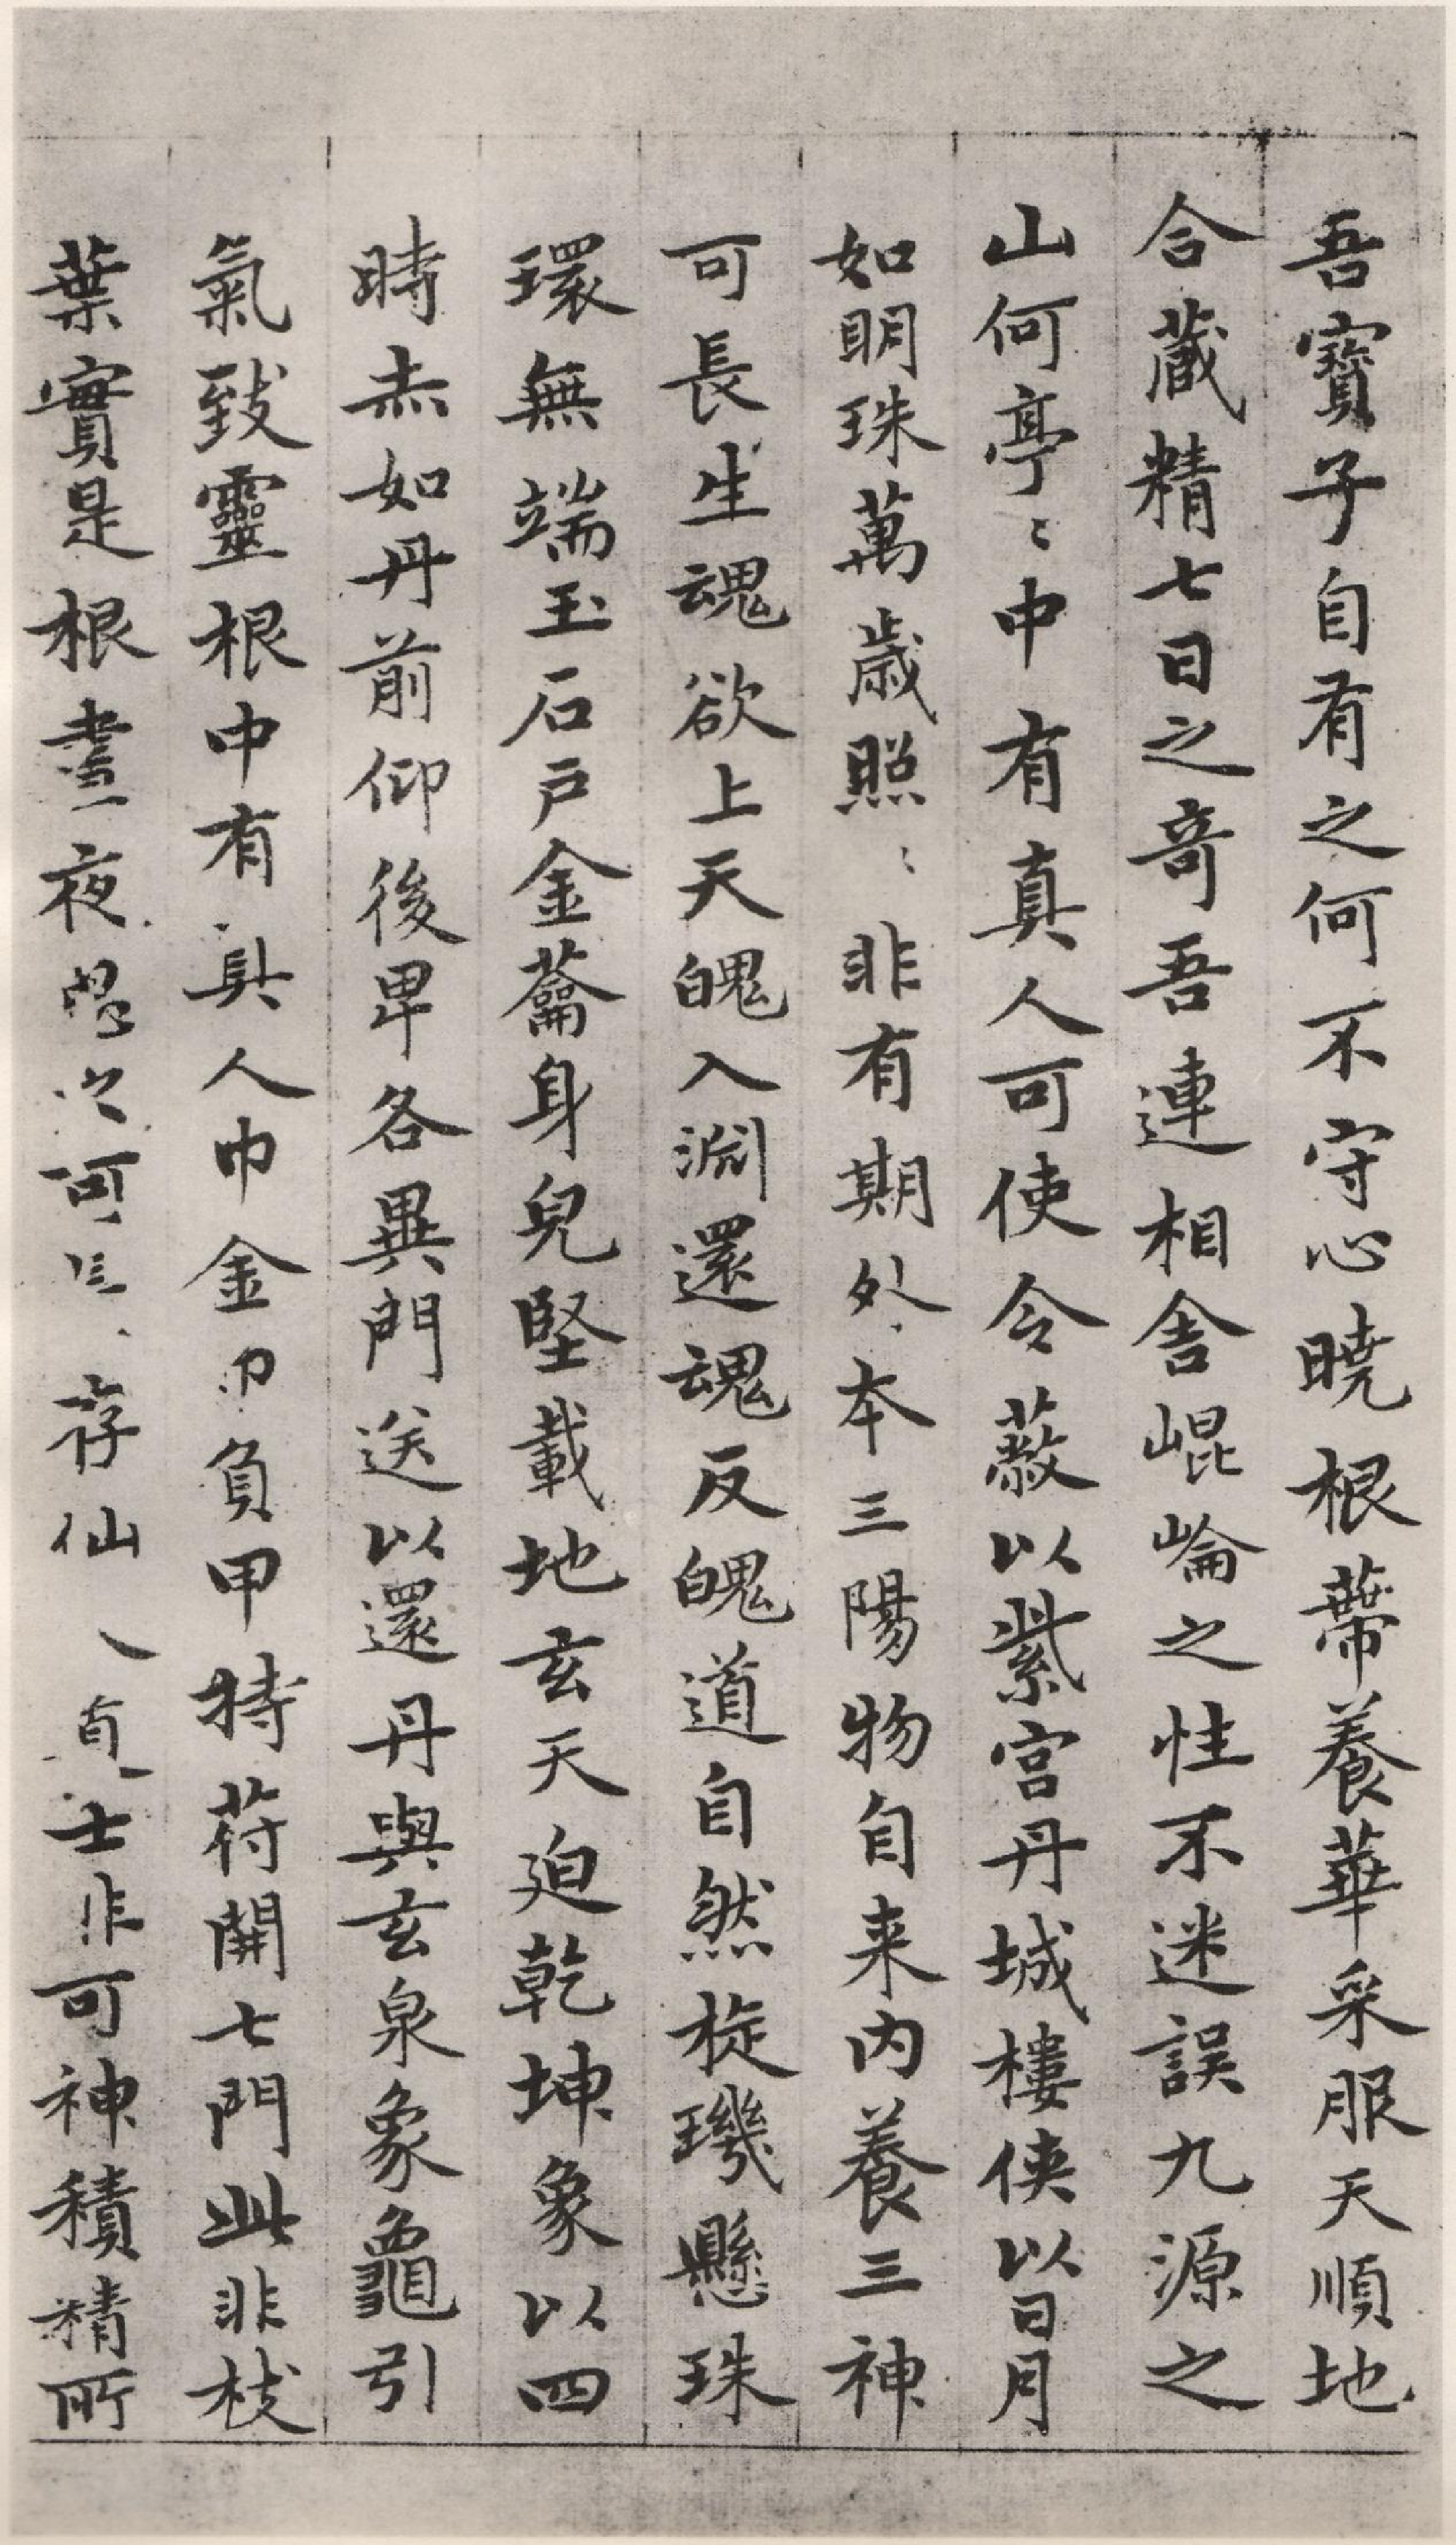 吾寶子自有之何不守心曉根蔕養華采服天順地
合蔵精七日之奇吾連相舎崐崘之性不迷誤九源之
山何亭〻中有真人可使令蔽以紫宮丹城樓侠以日月
如明珠萬歳照〻非有期外本三陽物自来内養三神
可長生魂欲上天魄入淵還魂反魄道自然㨀璣懸珠
環無端玉石戸金蘥身皃堅載地玄天迫乾坤象以四
時赤如丹前仰後卑各異門送以還丹與玄泉象龜引
氣致靈根中有真人巾金巾負甲持苻開七門此非枝
葉實是根晝夜思之可長存仙人道士非可神積精所